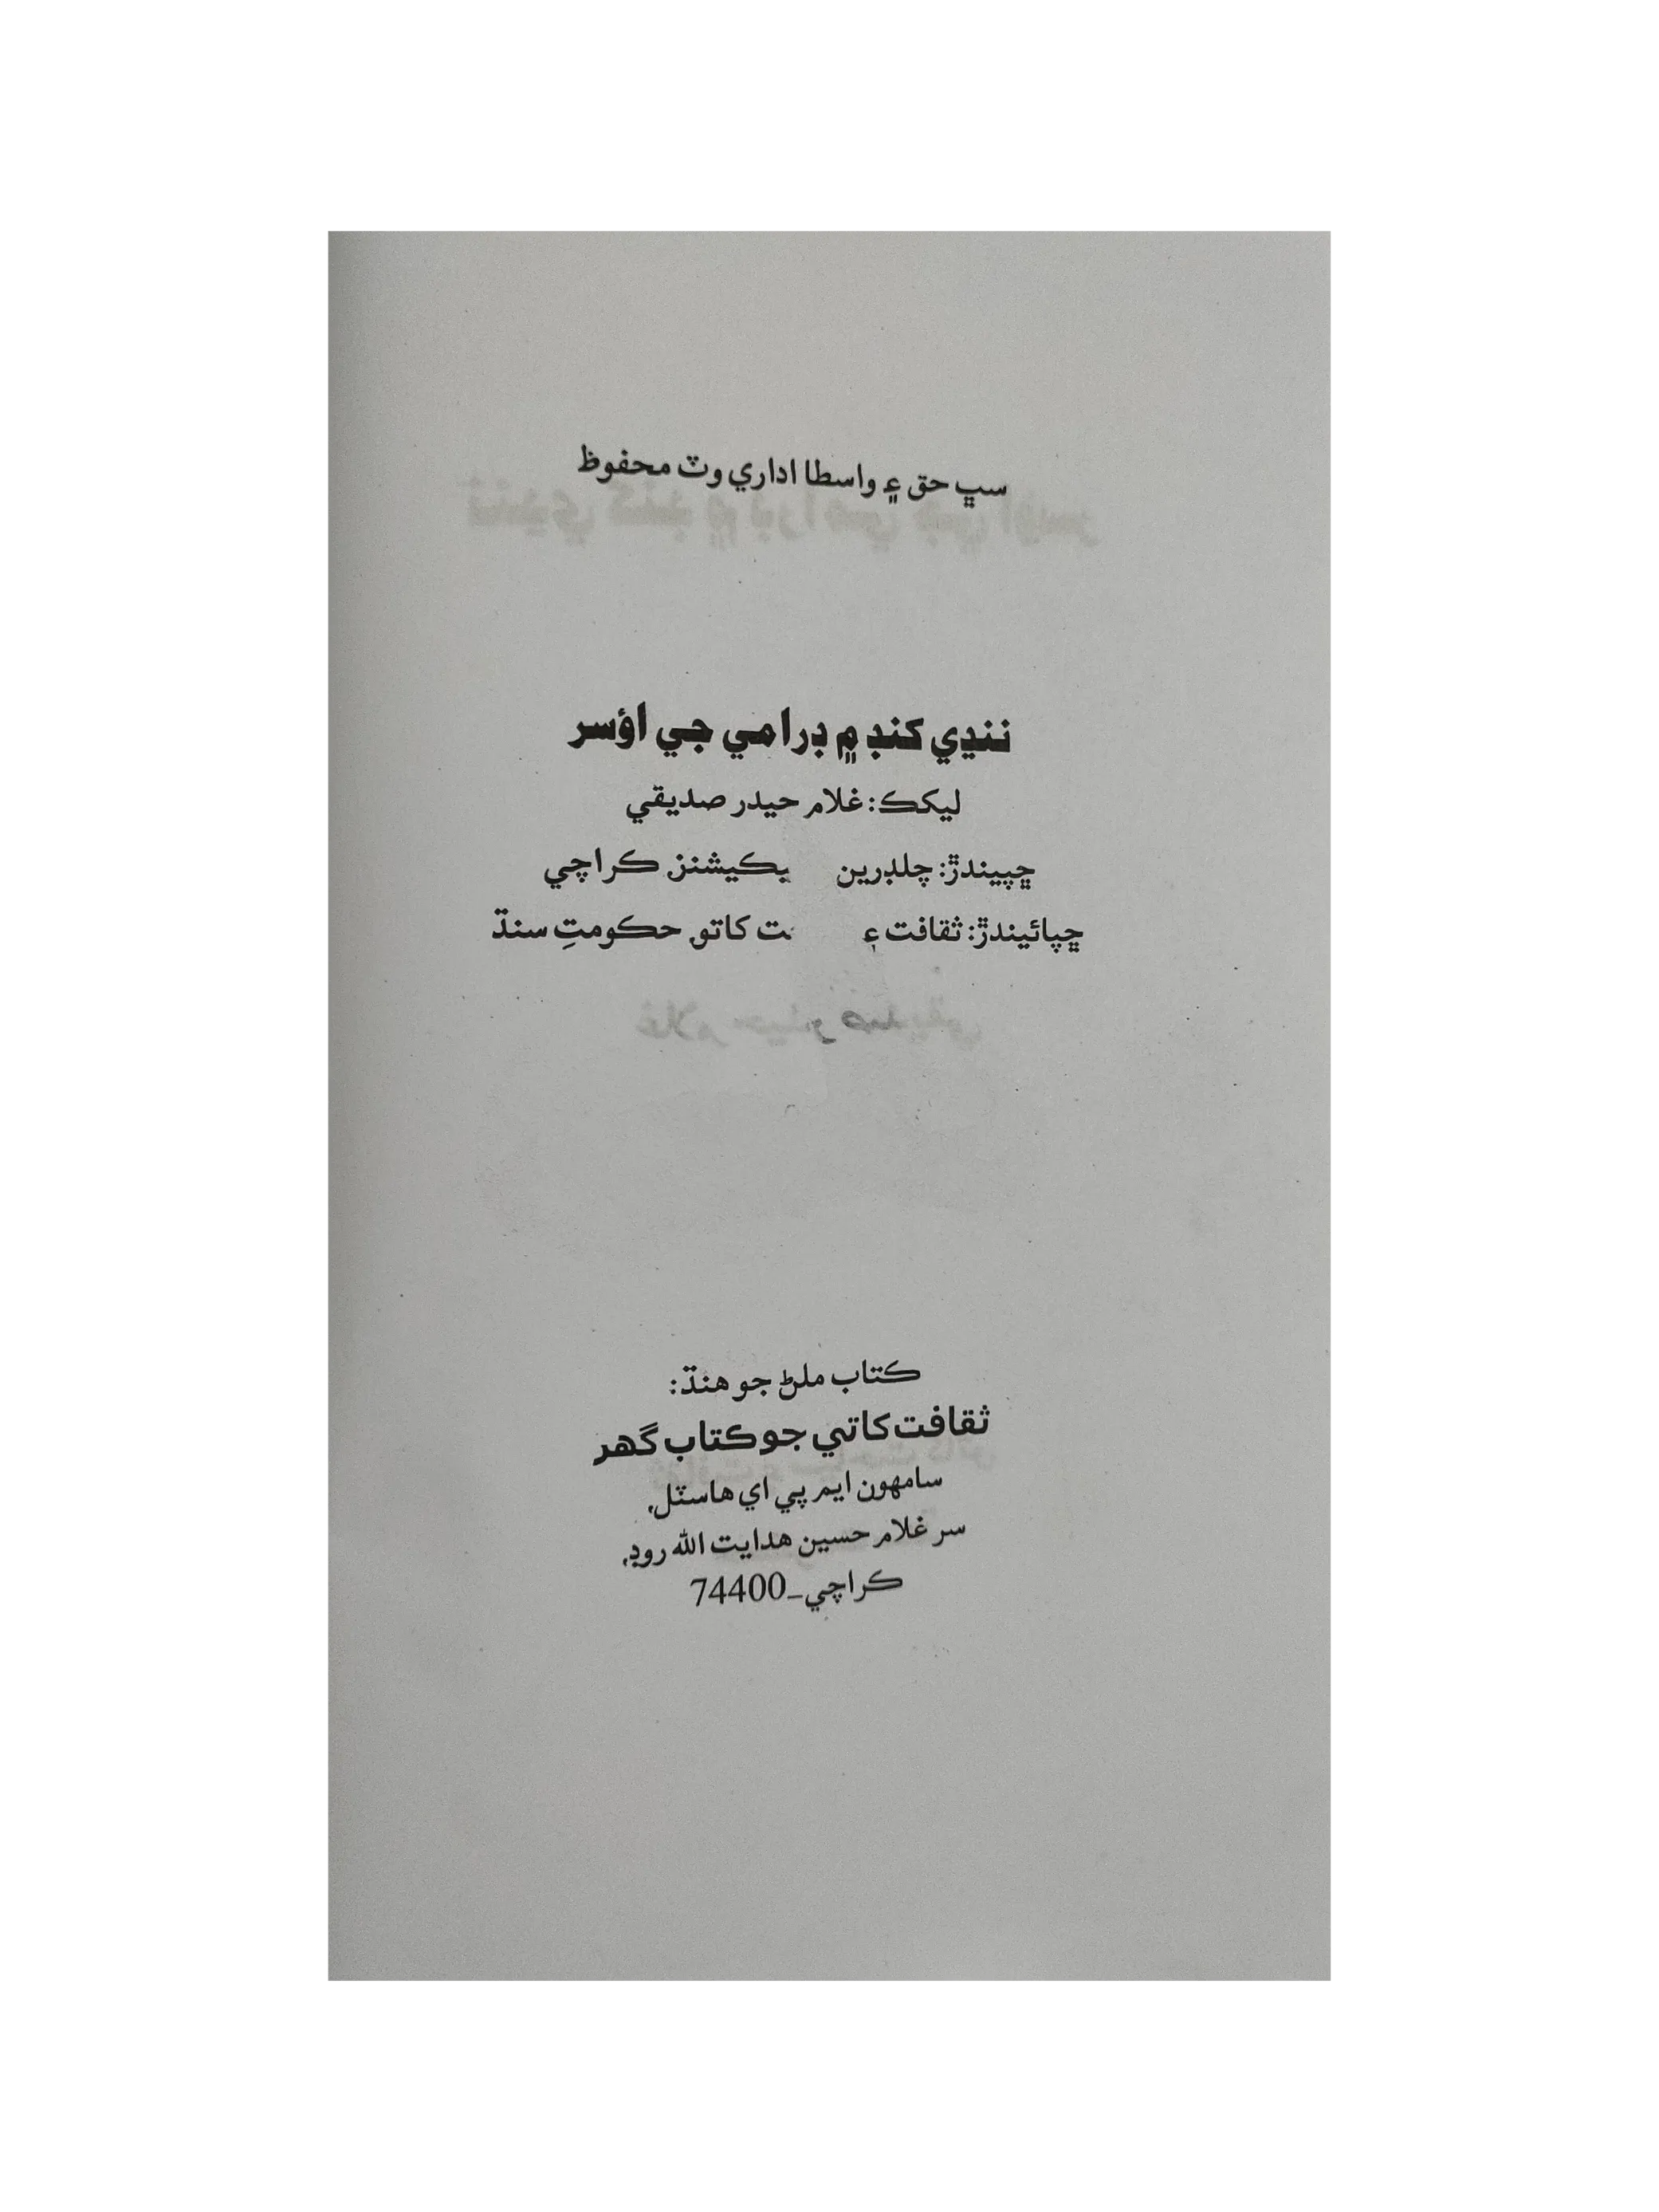 سڀ حق ۽ واسطا اداري وٽ محفوظ
ننڍي کنڊ ۾ ڊرامي جي اؤسر
ليکڪ: غلام حيدر صديقي
ڇپيندڙ: چلڊرين ڪراچي
ڇپائيندڙ: ثقافت ۽ کاتو، حڪومتِ سنڌ
ڪتاب ملڻ جو هنڌ:
ثقافت کاتي جو ڪتاب گهر
سامهون ايم پي اي هاسٽل،
سر غلام حسين هدايت الله روڊ،
ڪراچي_74400